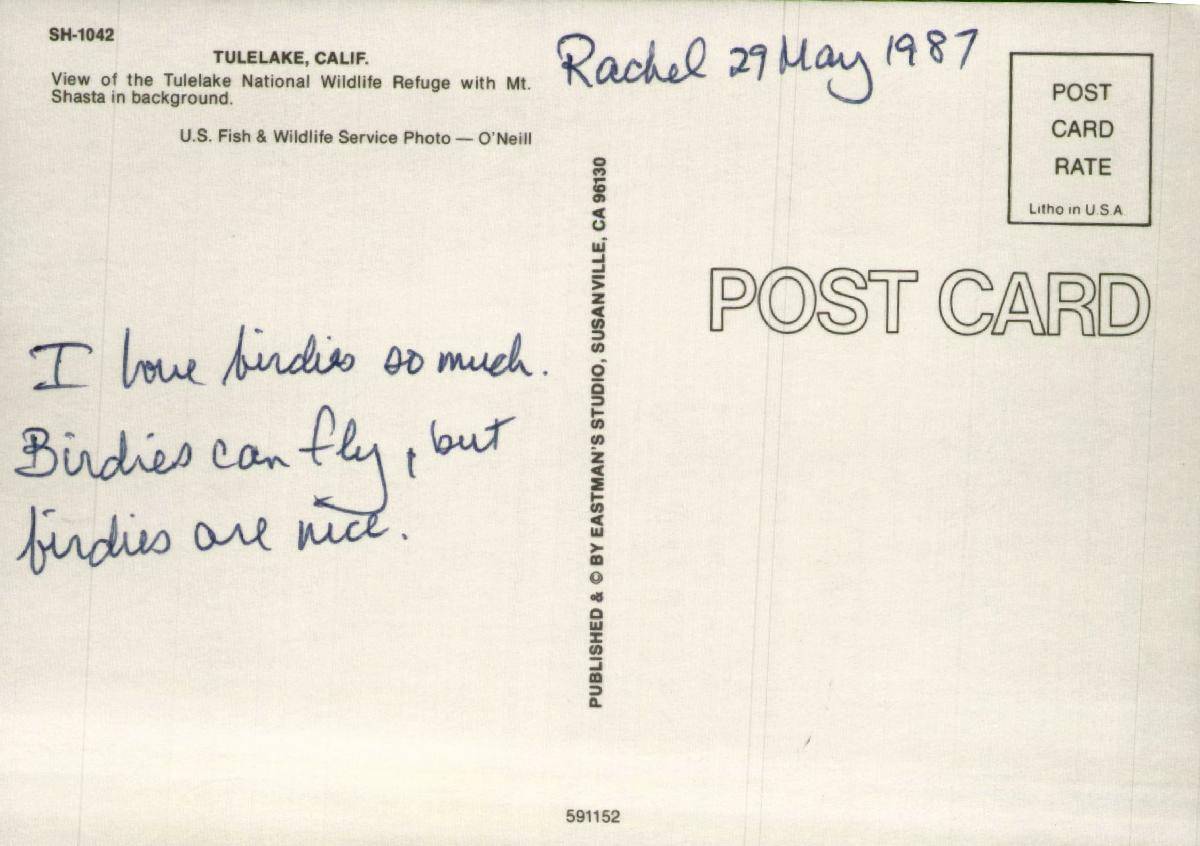 SH-1042
TULELAKE, CALIF.
View of the Tulelake National Wildlife Refuge with Mt.
Shasta in background.
U.S. Fish & Wildlife Service Photo — O'Neill
Rachel 29 May 1987
POST
CARD
RATE
Litho in U.S.A
POST CARD
I love birdies so much.
Birdies can fly, but
birdies are nice.
PUBLISHED & © BY EASTMAN'S STUDIO, SUSANVILLE, CA 96130
591152